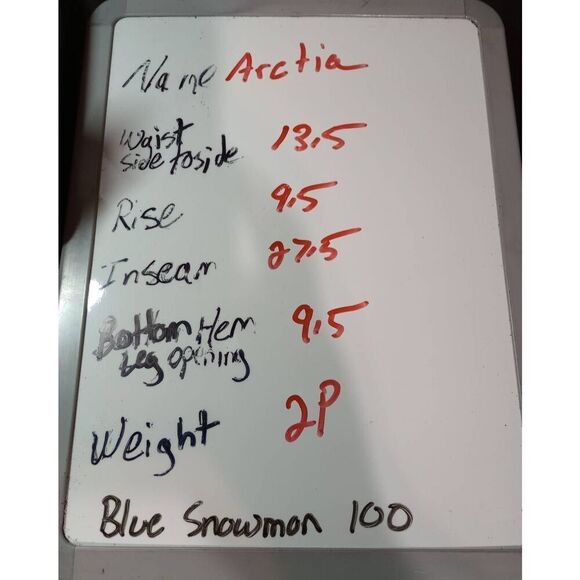 Name Arctia
Waist 13.5
side to side
Rise 9.5
Inseam 27.5
Bottom Hem 9.5
Leg opening
Weight 2P
Blue Snowman 100